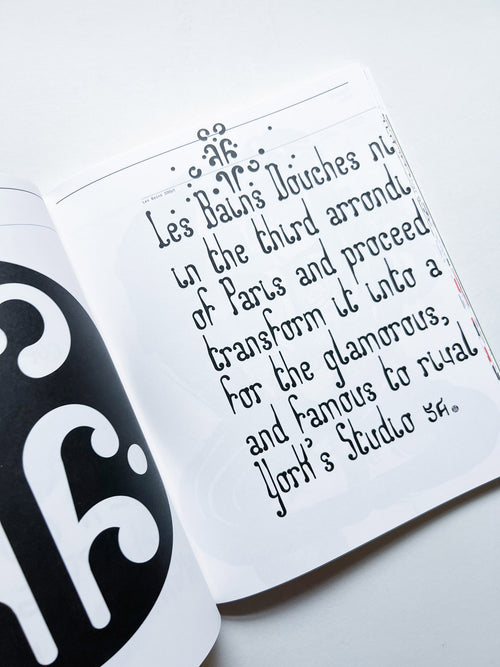 Les Bains Douches ni
in the third arrondi
of Paris and proceed
transform it into a
for the glamorous,
and famous to rival
York's Studio 54.